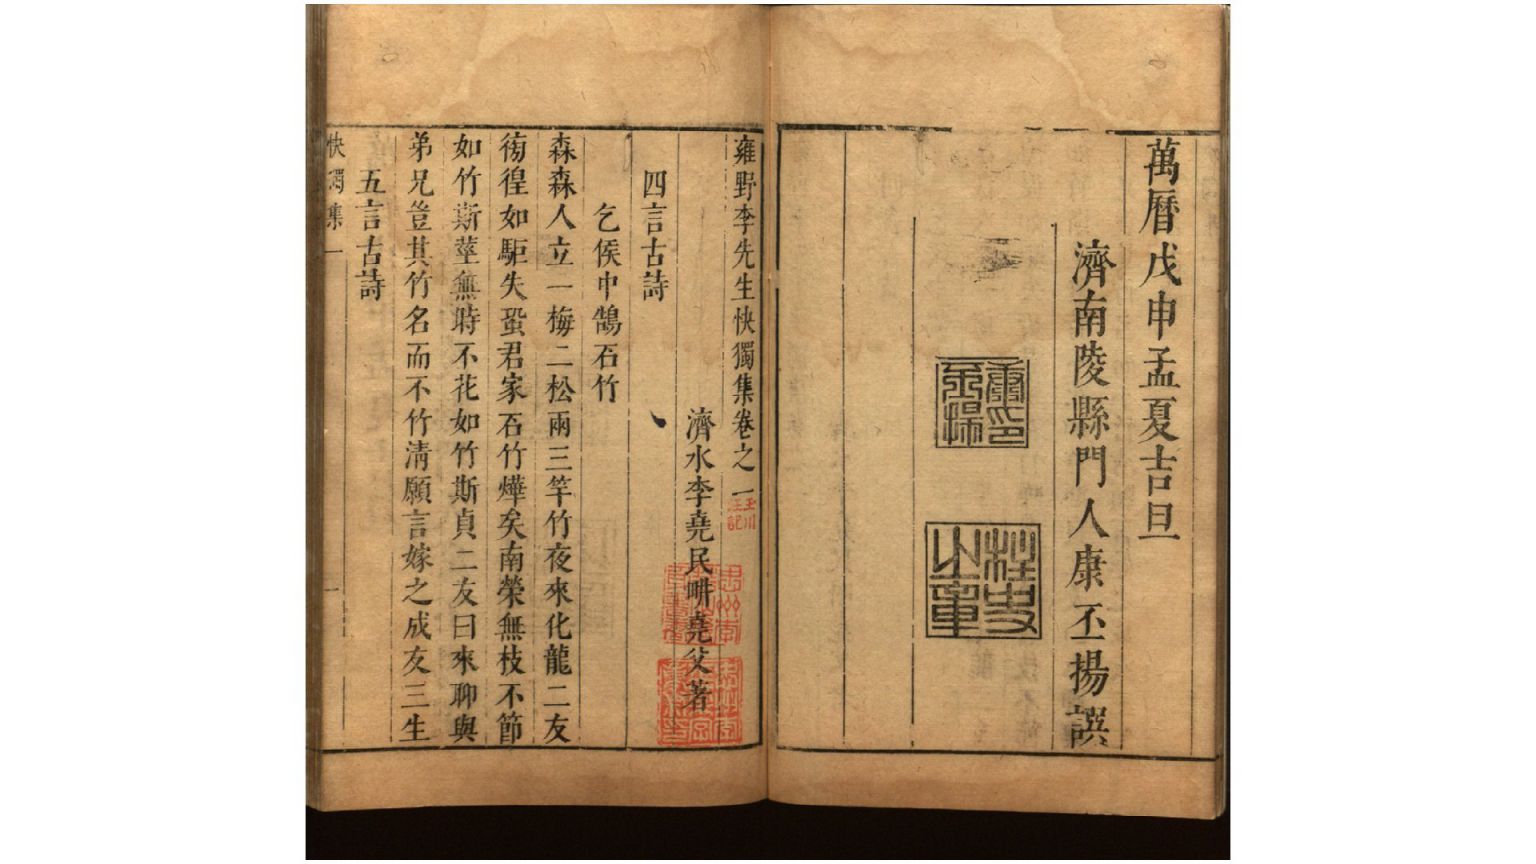 萬曆戊申孟夏吉旦
濟南陵縣門人康丕揚譔
康丕揚印
柱史之章
雍野李先生快獨集卷之一
濟水李堯民畊堯父著
四言古詩
乞侯中鵠石竹
森森人立一梅二松兩三竿竹夜來化龍二友
徬徨如駏失蛩君家石竹燁矣南榮無枝不節
如竹斯莖無時不花如竹斯貞二友曰來聊與
弟兄豈其竹名而不竹淸願言嫁之成友三生
五言古詩
快獨集一
一